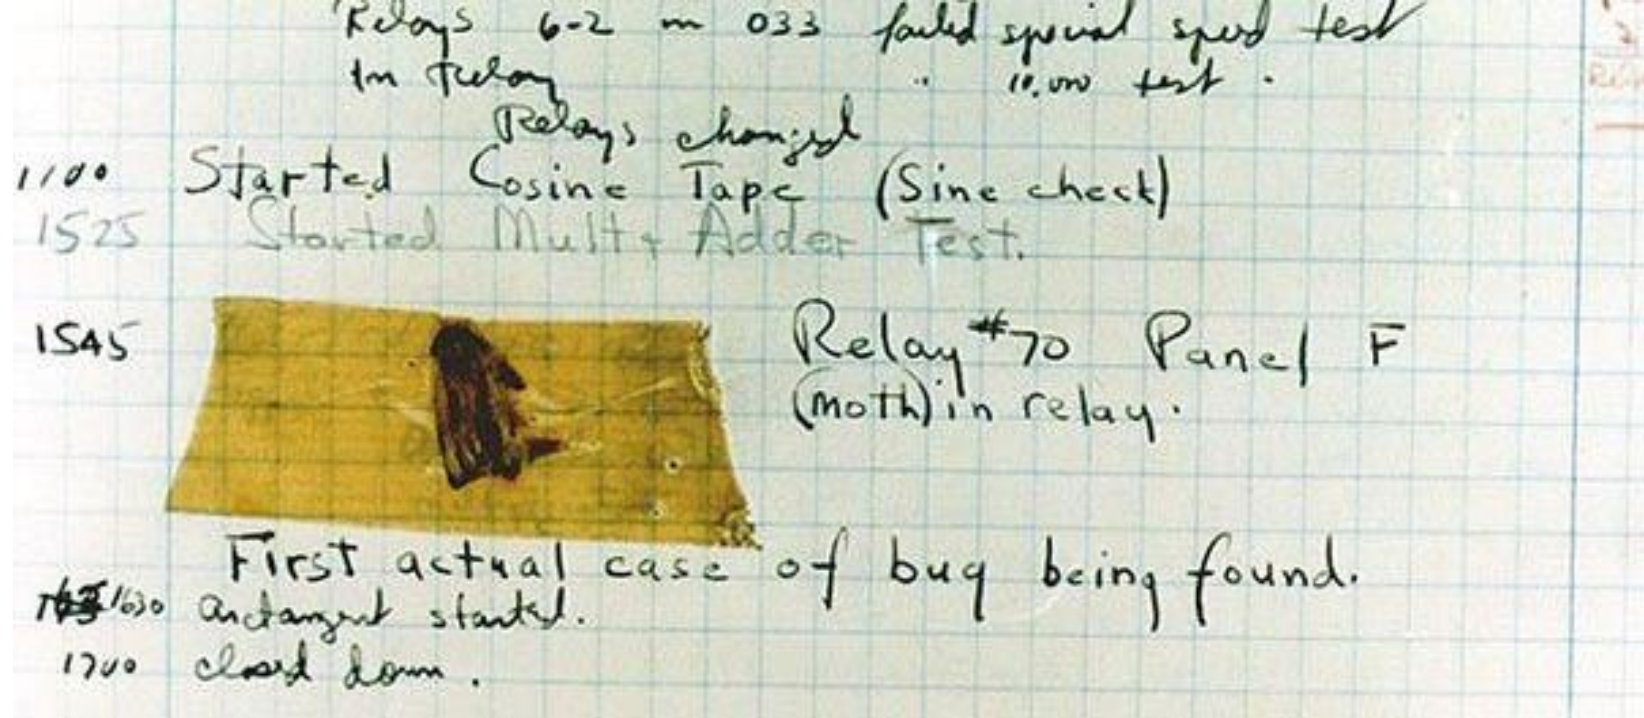 Relays 6-2 in 033 failed special speed test
In Relay " 10,000 test.
Relays changed
1100 Started Cosine Tape (Sine check)
1525 Started Mult+ Adder Test.
1545 Relay #70 Panel F
(moth) in relay.
First actual case of bug being found.
1630 arctangent started.
1700 closed down.